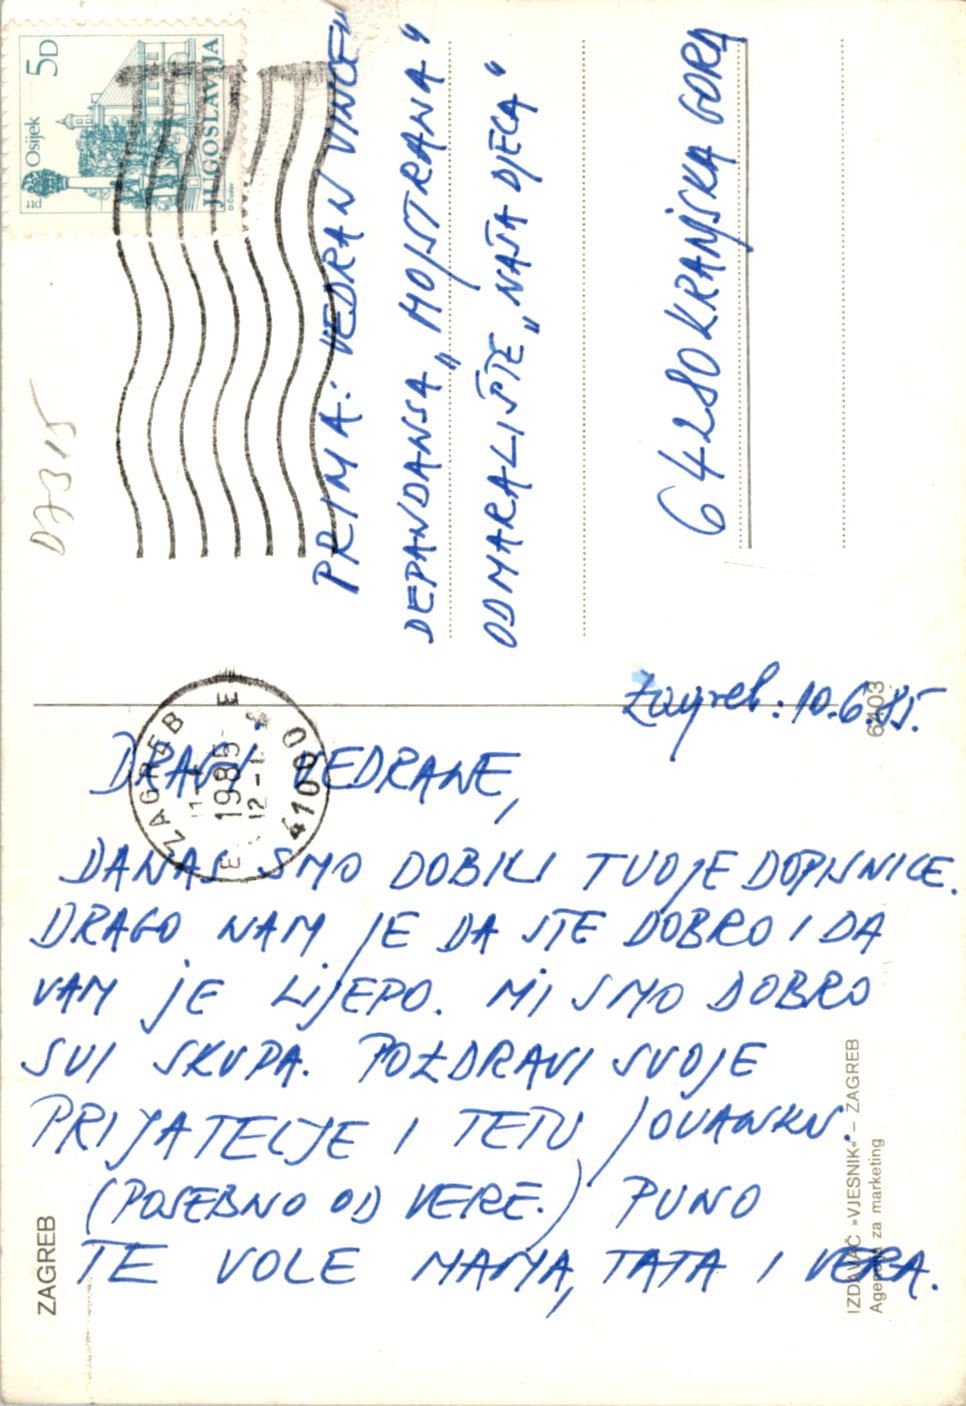 Osijek 5D
JUGOSLAVIJA
PRIMA: VEDRAN VINCE
DEPANDANSA „MOJSTRANA“
ODMARALIŠTE „NAŠA DJECA“
64280 KRANJSKA GORA
D7315
ZAGREB
1985
41000
Zagreb: 10.6.85.
6103
DRAGI VEDRANE,
DANAS SMO DOBILI TVOJE DOPISNICE.
DRAGO NAM JE DA STE DOBRO I DA
VAM JE LIJEPO. MI SMO DOBRO
SVI SKUPA. POZDRAVI SVOJE
PRIJATELJE I TETU JOVANKU.
(POSEBNO OD VERE.) PUNO
TE VOLE MAMA, TATA I VERA.
ZAGREB
IZDAVAČ »VJESNIK« – ZAGREB
Agencija za marketing